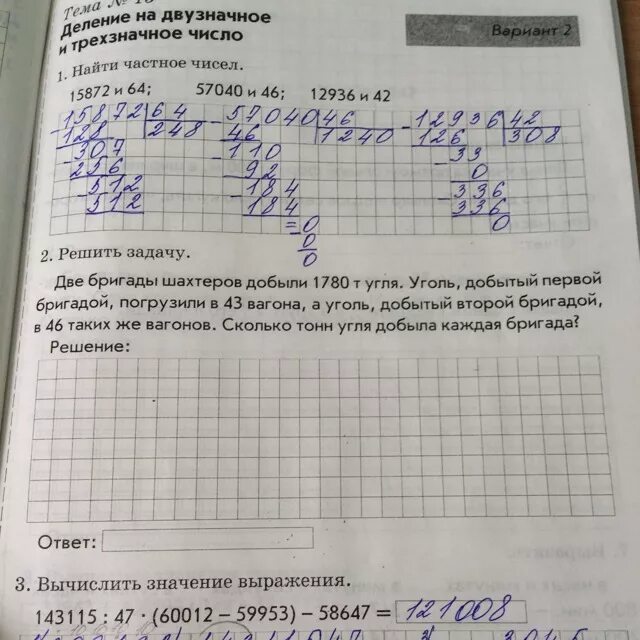 Тема № 18
Деление на двузначное
и трехзначное число
Вариант 2
1. Найти частное чисел.
15872 и 64; 57040 и 46; 12936 и 42
15872 64 57040 46 12936 42
128 248 46 1240 126 308
307 110 33
256 92 0
512 184 336
512 184 336
=0 0
0
0
2. Решить задачу.
Две бригады шахтеров добыли 1780 т угля. Уголь, добытый первой
бригадой, погрузили в 43 вагона, а уголь, добытый второй бригадой,
в 46 таких же вагонов. Сколько тонн угля добыла каждая бригада?
Решение:
Ответ:
3. Вычислить значение выражения.
143115 : 47 · (60012 – 59953) – 58647 = 121008